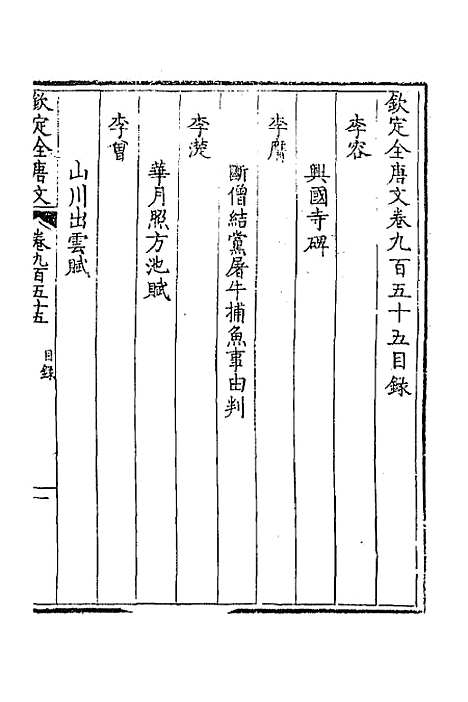 欽定全唐文卷九百五十五目錄
李容
興國寺碑
李膺
斷僧結黨屠牛捕魚事由判
李蒞
華月照方池賦
李曾
山川出雲賦
欽定全唐文 卷九百五十五 目錄 一